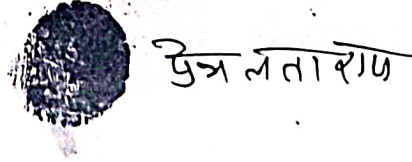 प्रेम लता राय